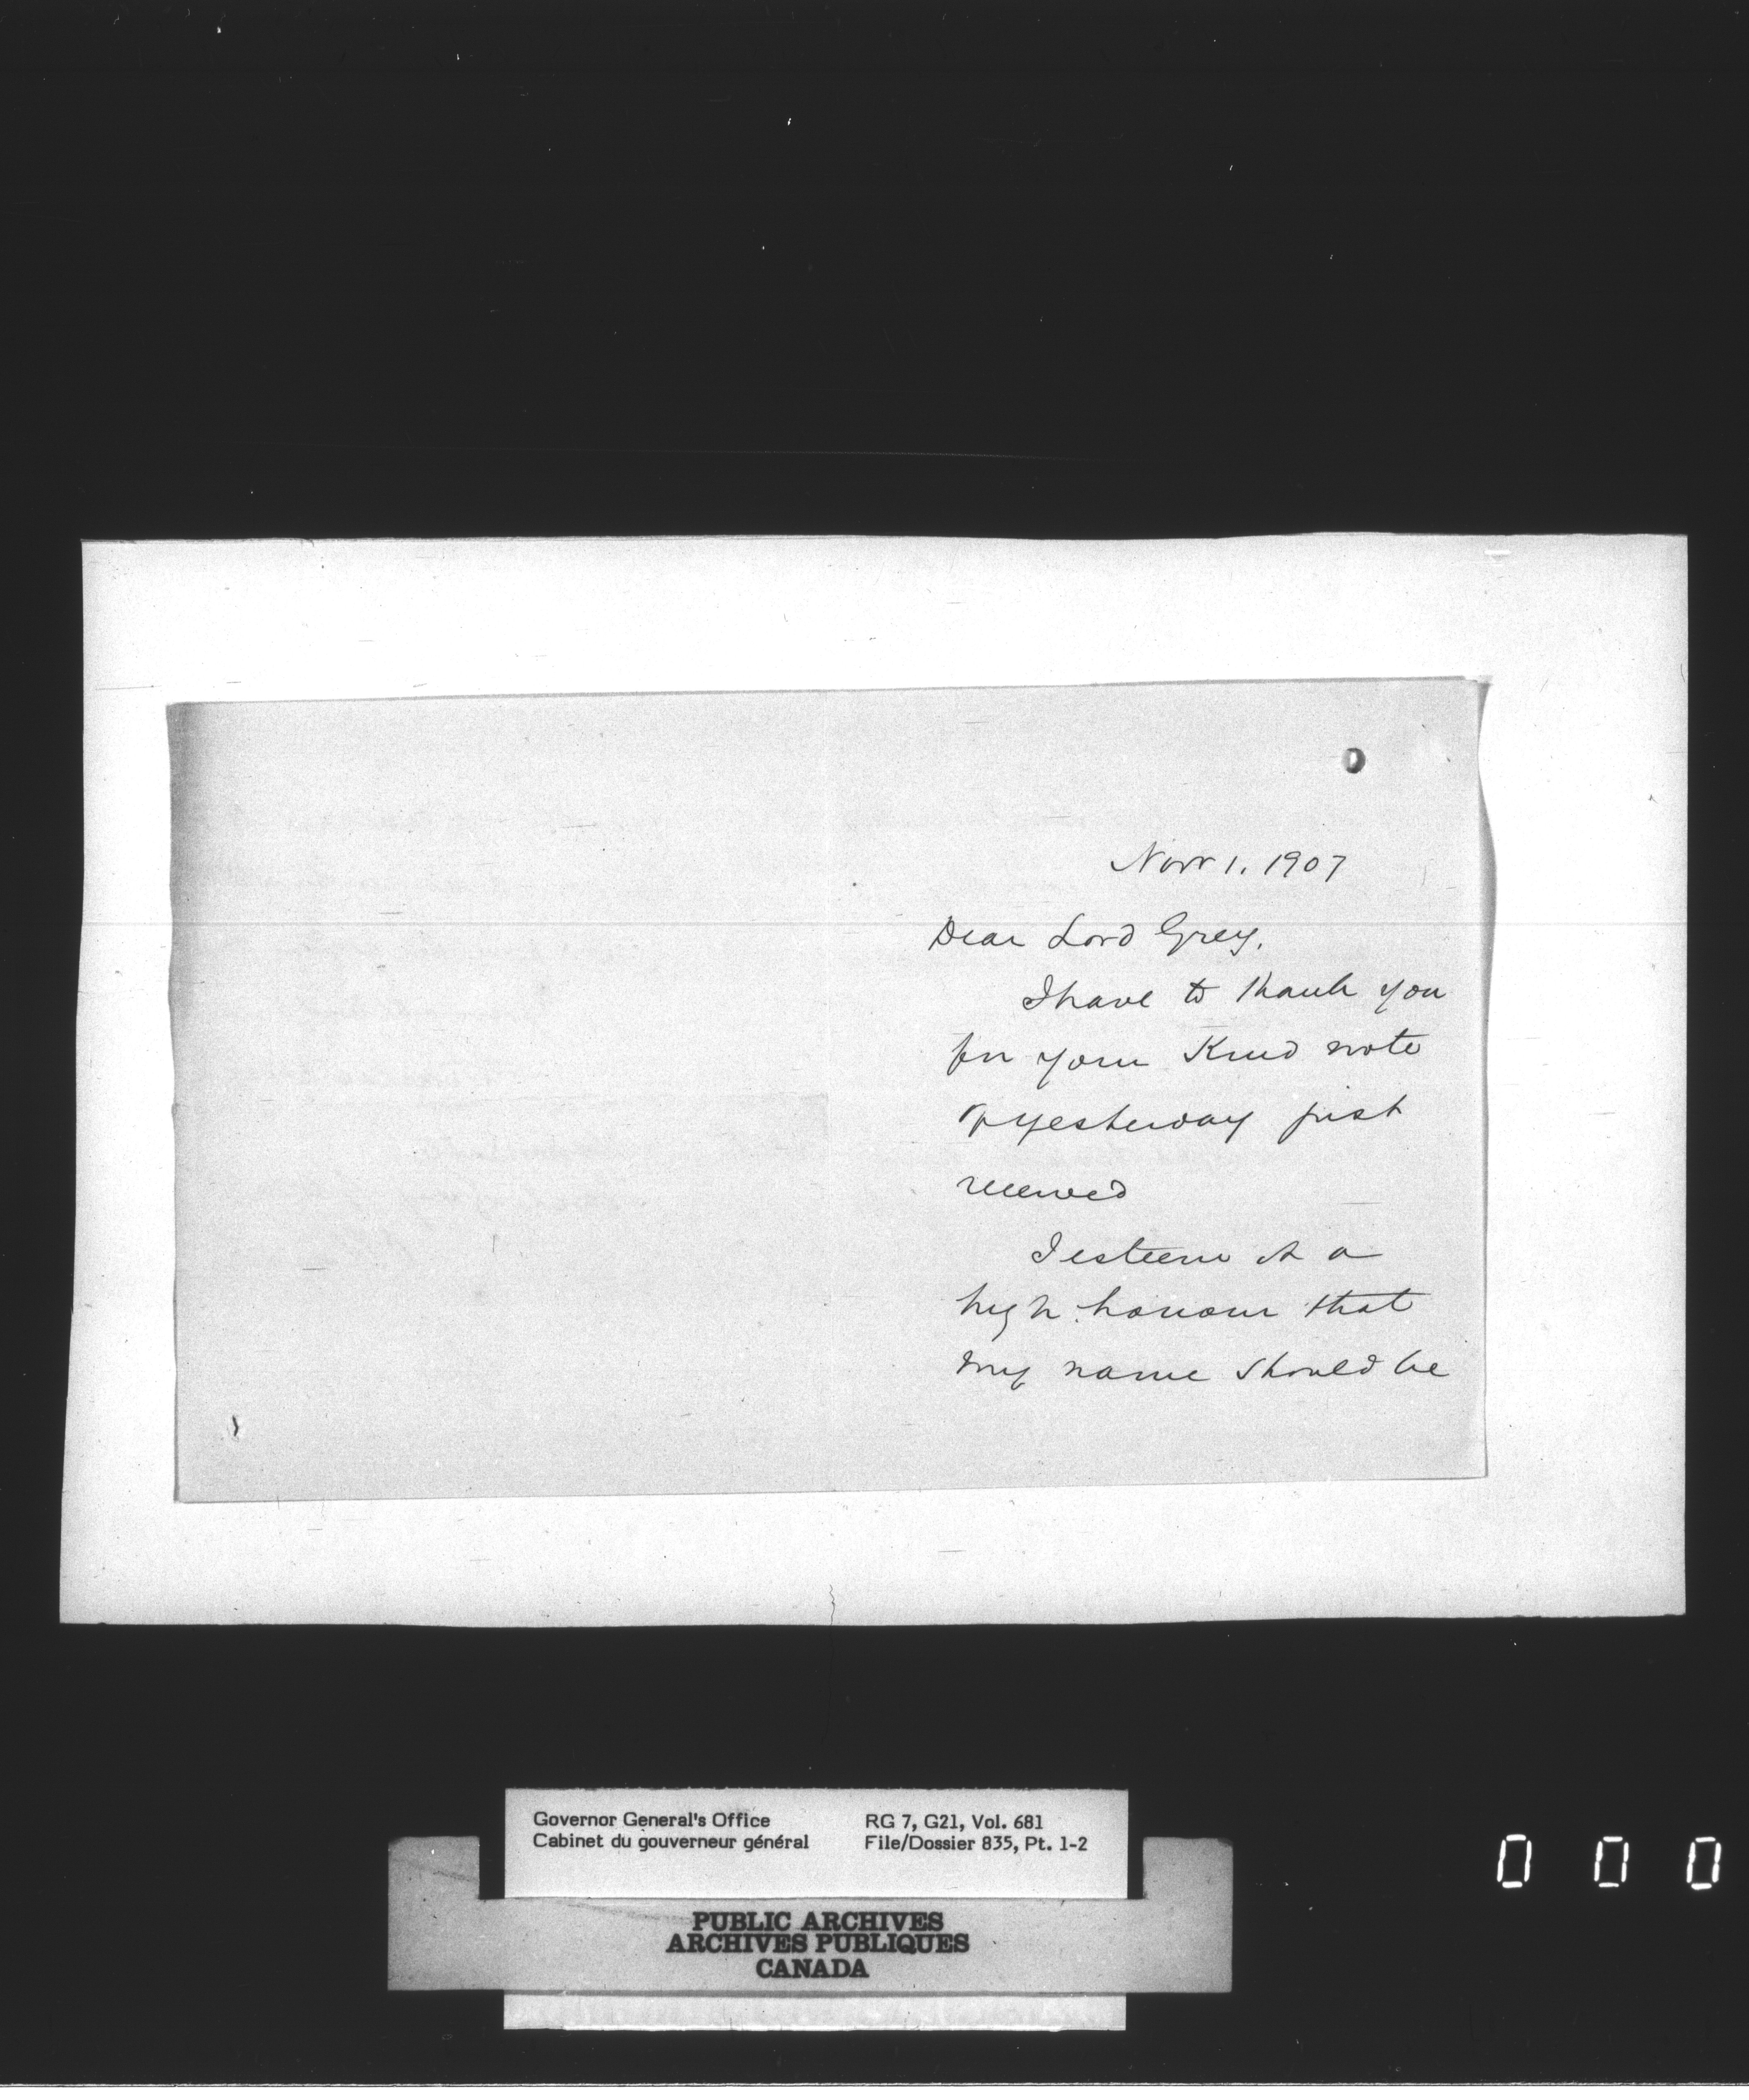 Novr 1. 1907
Dear Lord Grey,
I have to thank you
for your Kind note
of yesterday just
received
I esteem it a
high honour that
my name should be
Governor General's Office RG 7, G21, Vol. 681
Cabinet du gouverneur général File/Dossier 835, Pt. 1-2
PUBLIC ARCHIVES
ARCHIVES PUBLIQUES
CANADA
0 0 0